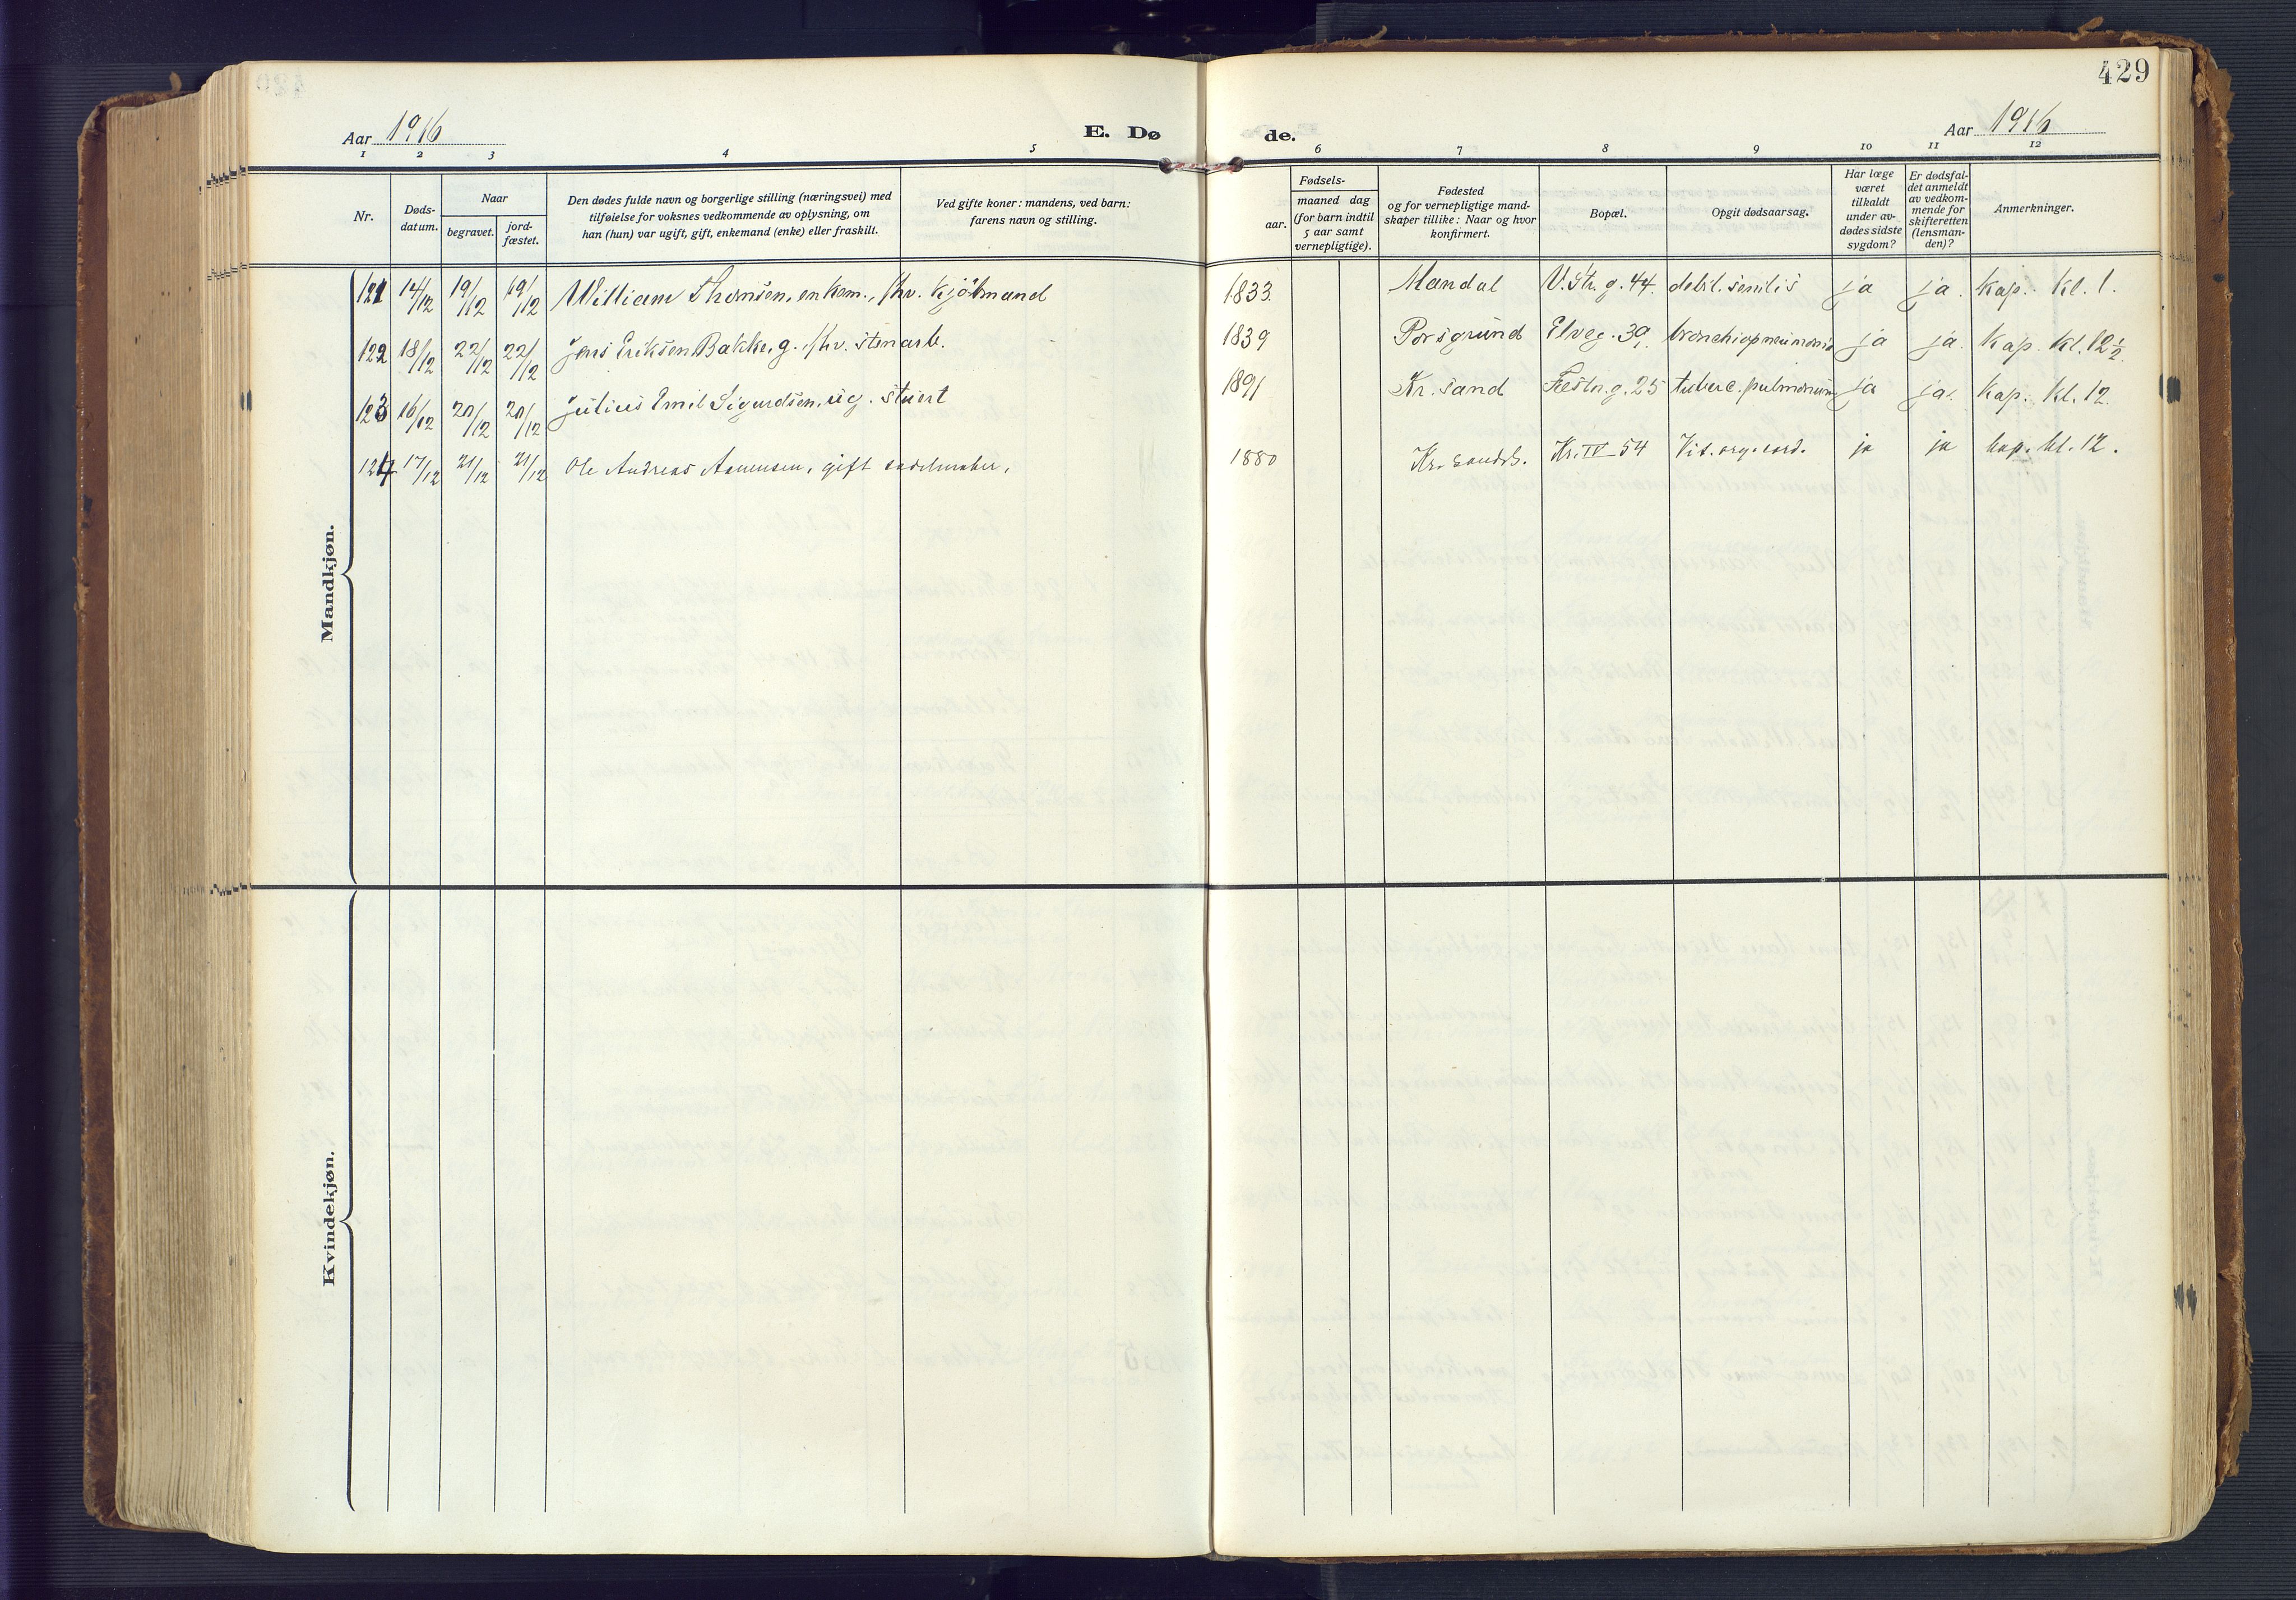 429
Aar 1916
E. Dø de.
Aar 1916
1 2 3 4 5 6 7 8 9 10 11 12
Nr.
Døds-
datum.
Naar
begravet.
jord-
fæstet.
Den dødes fulde navn og borgerlige stilling (næringsvei) med
tilføielse for voksnes vedkommende av oplysning, om
han (hun) var ugift, gift, enkemand (enke) eller fraskilt.
Ved gifte koner: mandens, ved barn:
farens navn og stilling.
Fødsels-
aar.
maaned dag
(for barn indtil
5 aar samt
vernepligtige).
Fødested
og for vernepligtige mand-
skaper tillike: Naar og hvor
konfirmert.
Bopæl.
Opgit dødsaarsag.
Har læge
været
tilkaldt
under av-
dødes sidste
sygdom?
Er dødsfal-
det anmeldt
av vedkom-
mende for
skifteretten
(lensman-
den)?
Anmerkninger.
Mandkjøn.
121 14/12 19/12 19/12 William Thomsen, enkem., fhv. Kjøbmand 1833. Mandal V. Str. g. 44. debil. senilis ja ja. Kap. Kl. 1.
122 18/12 22/12 22/12 Jens Eriksen Bakke, g. fhv. stenarb. 1839 Porsgrund Elveg. 39. bronchiopneumonia ja ja. Kap. Kl. 12½
123 16/12 20/12 20/12 Julius Emil Sigurdsen, ug. stuert 1891 Kr. sand Festn. g. 25 tuberc. pulmonum ja ja. Kap. Kl. 12.
124 17/12 21/12 21/12 Ole Andreas Asmensen, gift sadelmaker, 1880 Kr. sand Kr. IV 54 Vit. org. cord. ja ja kap. kl. 12.
Kvindekjøn.